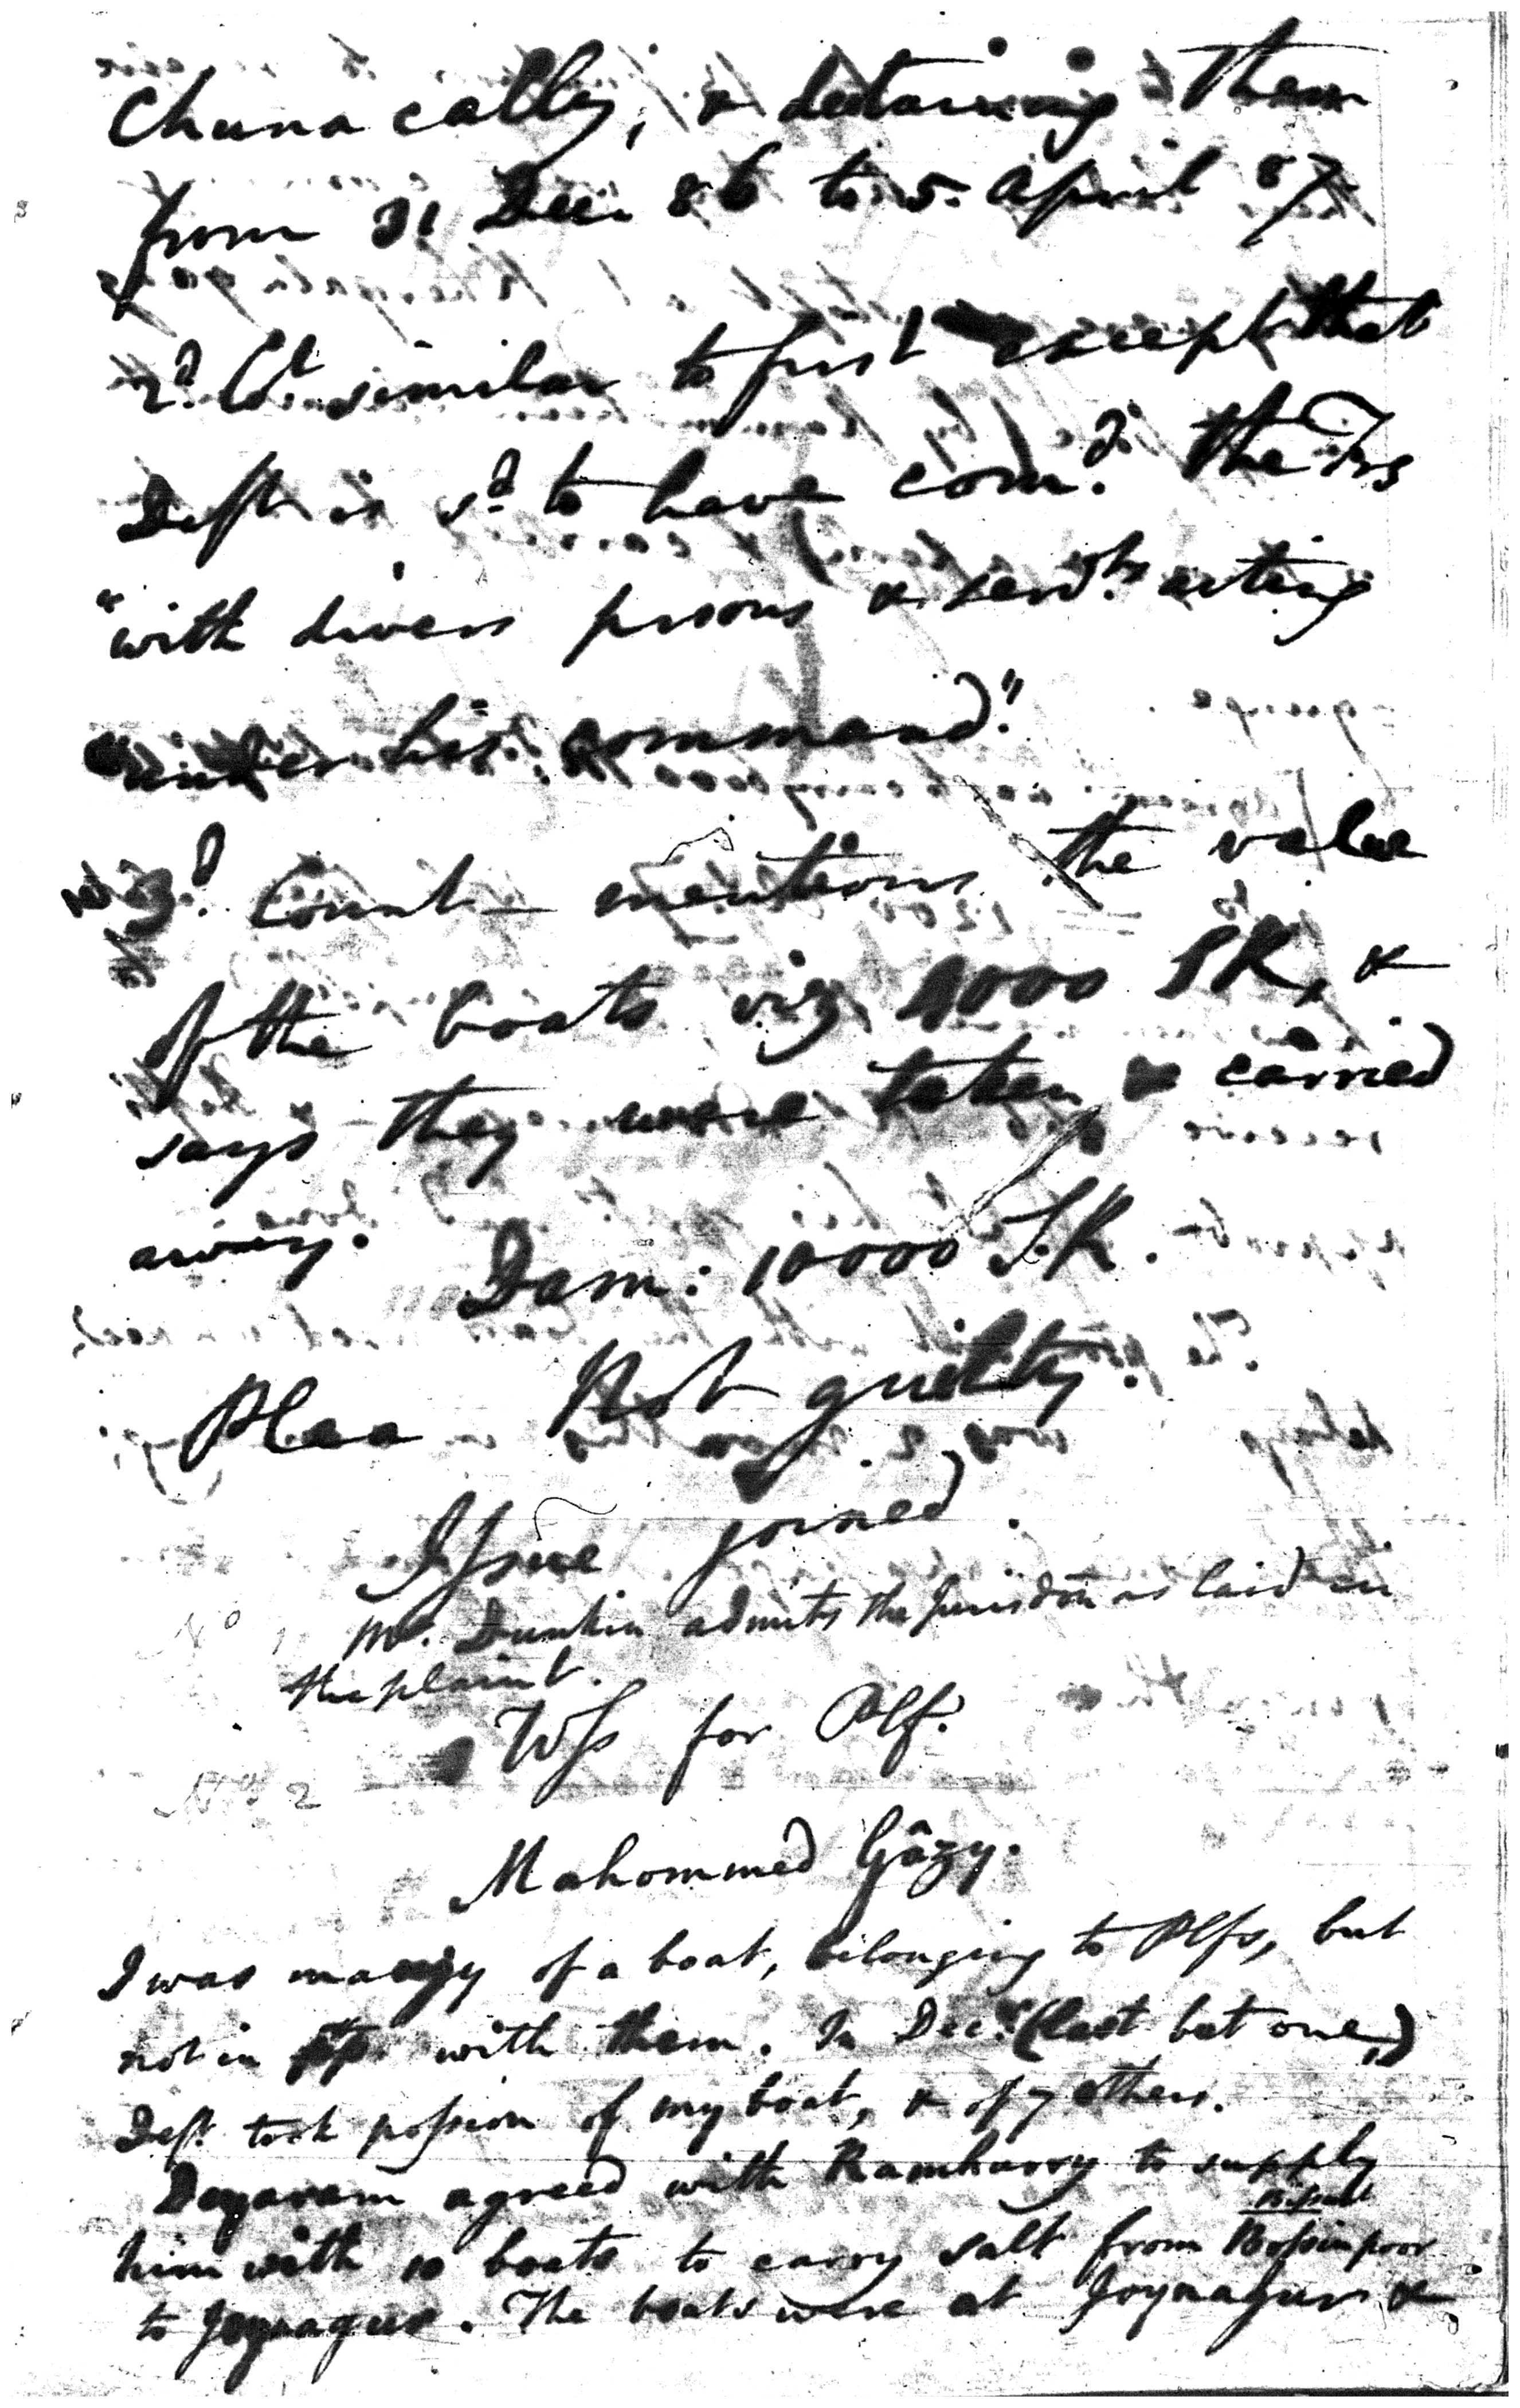 Chunacally, & detaining them
from 31 Decr 86 to 5. April 87
2d. Ct similar to first except that
Deft is sd. to have comd. the Trs
"with divers psons & servts. acting
"under his command."
3d. Count — mentions the value
of the boats viz 1000 SR, &
says they were taken & carried
away.
Dam: 10000 S.R.
Plea Not guilty.
Issue joined.
Mr. Dunkin admits the Jurisdon as laid in
the plaint.
Wss for Plf.
No 2
Mahommed Gâzy.
I was mangy of a boat, belonging to Plfs, but
not in with them. In Decr. (last but one,)
Deft. took possion of my boat, & of 7 others.
Dayaram agreed with Ramhurry to supply
him with 10 boats to carry salt from
to Joynagur. The boats were at Joynagur &